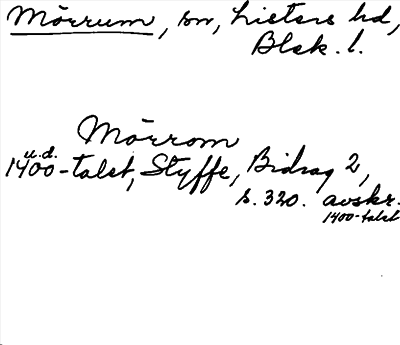 Mörrum, sn, Listers hd,
Blek. l.
Mörrom
u.d.
1400-talet, Styffe, Bidrag 2,
s. 320. avskr.
1400-talet